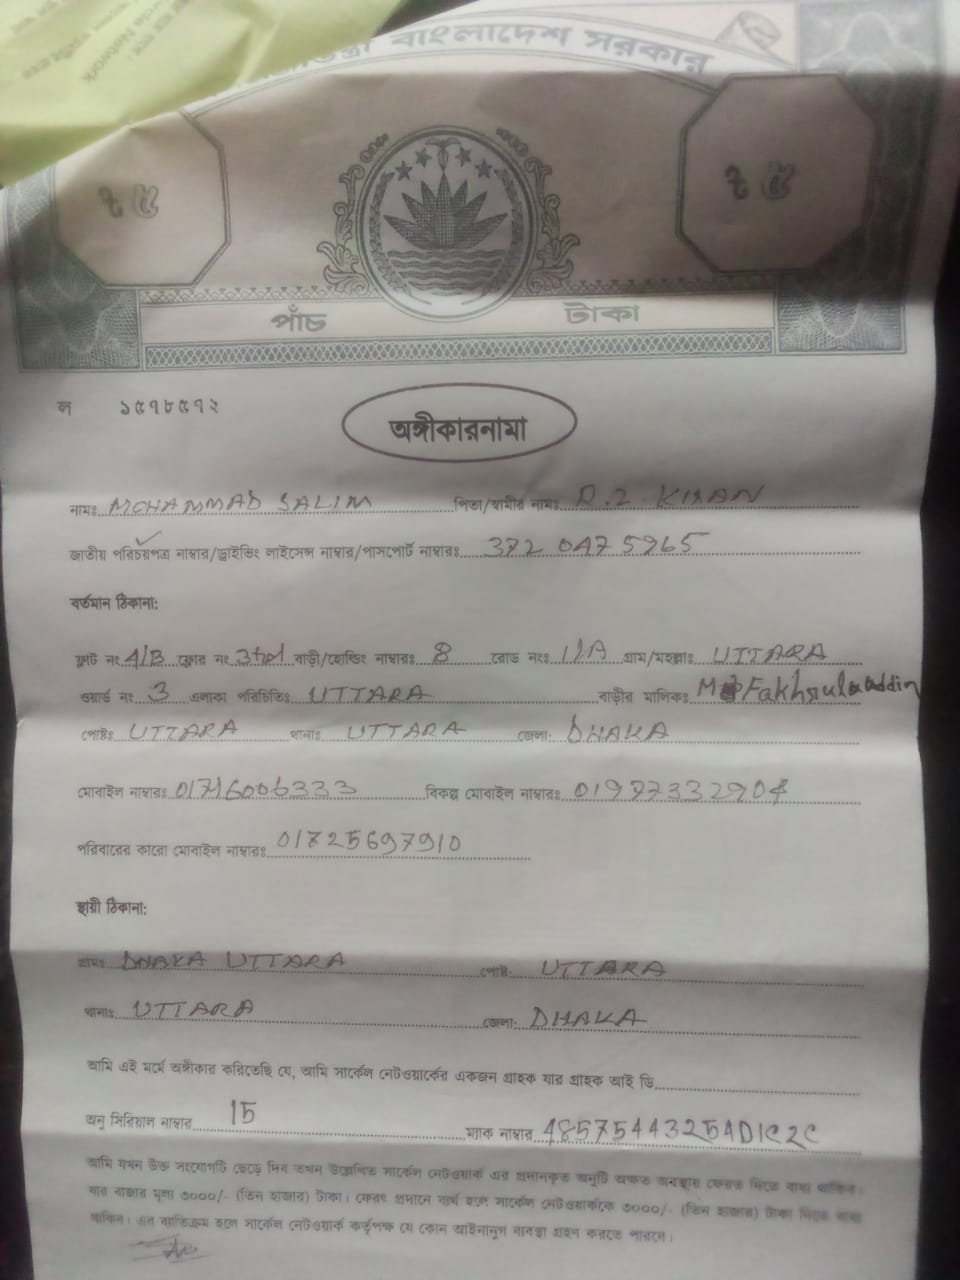 বাংলাদেশ সরকার
৳ ৫ ৳ ৫
পাঁচ টাকা
ল ১৫৭৮৫৭২
অঙ্গীকারনামা
নামঃ MOHAMMAD SALIM পিতা/স্বামীর নামঃ R.Z KIRAN
জাতীয় পরিচয়পত্র নাম্বার/ড্রাইভিং লাইসেন্স নাম্বার/পাসপোর্ট নাম্বারঃ 372 0475965
বর্তমান ঠিকানা:
ফ্লাট নং 4/B ফ্লোর নং বাড়ী/হোল্ডিং নাম্বারঃ 8 রোড নংঃ গ্রাম/মহল্লাঃ UTTARA
ওয়ার্ড নং 3 এলাকা পরিচিতিঃ UTTARA বাড়ীর মালিকঃ
পোষ্টঃ UTTARA থানাঃ UTTARA জেলা: DHAKA
মোবাইল নাম্বারঃ 01716006333 বিকল্প মোবাইল নাম্বারঃ
পরিবারের কারো মোবাইল নাম্বারঃ 01725697910
স্থায়ী ঠিকানা:
গ্রামঃ DHAKA UTTARA পোষ্ট: UTTARA
থানাঃ UTTARA জেলা: DHAKA
আমি এই মর্মে অঙ্গীকার করিতেছি যে, আমি সার্কেল নেটওয়ার্কের একজন গ্রাহক যার গ্রাহক আই ডি
অনু সিরিয়াল নাম্বার 15 ম্যাক নাম্বার 48575443254D1C2C
আমি যখন উক্ত সংযোগটি ছেড়ে দিব তখন উল্লেখিত সার্কেল নেটওয়ার্ক এর প্রদানকৃত অনুটি অক্ষত অবস্থায় ফেরত দিতে বাধ্য থাকিব।
যার বাজার মূল্য ৩০০০/- (তিন হাজার) টাকা। ফেরৎ প্রদানে ব্যর্থ হলে সার্কেল নেটওয়ার্ককে ৩০০০/- (তিন হাজার) টাকা দিতে বাধ্য
থাকিব। এর ব্যতিক্রম হলে সার্কেল নেটওয়ার্ক কর্তৃপক্ষ যে কোন আইনানুগ ব্যবস্থা গ্রহণ করতে পারবে।